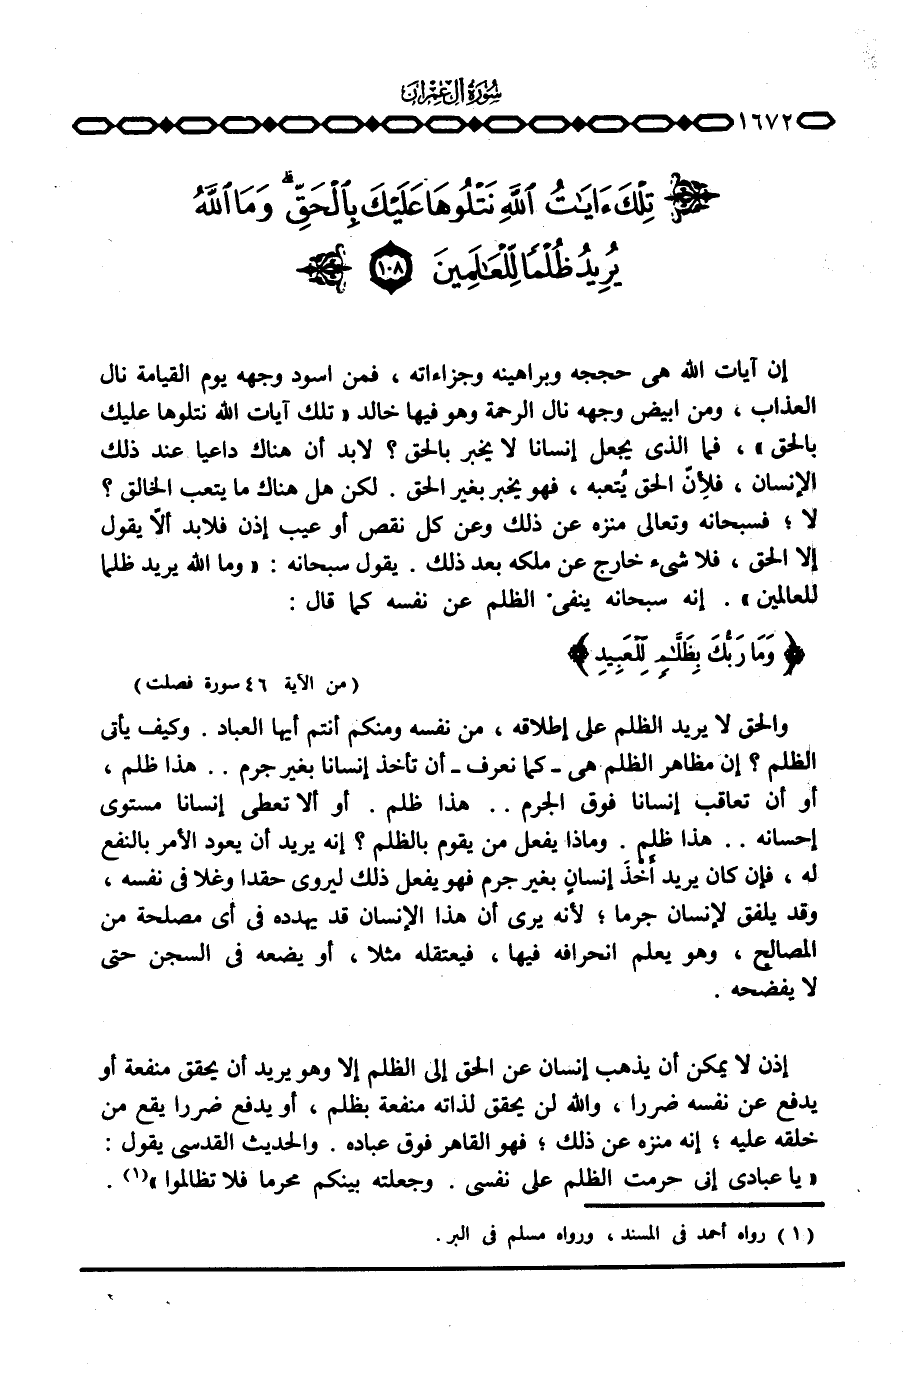 سورة آل عمران
١٦٧٢
تِلْكَ ءَايَٰتُ ٱللَّهِ نَتْلُوهَا عَلَيْكَ بِٱلْحَقِّ ۗ وَمَا ٱللَّهُ
يُرِيدُ ظُلْمًا لِّلْعَٰلَمِينَ ١٠٨
إن آيات الله هى حججه وبراهينه وجزاءاته ، فمن اسود وجهه يوم القيامة نال
العذاب ، ومن ابيض وجهه نال الرحمة وهو فيها خالد « تلك آيات الله نتلوها عليك
بالحق » ، فما الذى يجعل إنسانا لا يخبر بالحق ؟ لابد أن هناك داعيا عند ذلك
الإنسان ، فلأنّ الحق يُتعبه ، فهو يخبر بغير الحق . لكن هل هناك ما يتعب الخالق ؟
لا ؛ فسبحانه وتعالى منزه عن ذلك وعن كل نقص أو عيب إذن فلابد ألاّ يقول
إلا الحق ، فلا شىء خارج عن ملكه بعد ذلك . يقول سبحانه : « وما الله يريد ظلما
للعالمين » . إنه سبحانه ينفى الظلم عن نفسه كما قال :
﴿ وَمَا رَبُّكَ بِظَلَّٰمٍ لِّلْعَبِيدِ ﴾
( من الآية ٤٦ سورة فصلت )
والحق لا يريد الظلم على إطلاقه ، من نفسه ومنكم أنتم أيها العباد . وكيف يأتى
الظلم ؟ إن مظاهر الظلم هى - كما نعرف - أن تأخذ إنسانا بغير جرم .. هذا ظلم ،
أو أن تعاقب إنسانا فوق الجرم .. هذا ظلم . أو ألا تعطى إنسانا مستوى
إحسانه .. هذا ظلم . وماذا يفعل من يقوم بالظلم ؟ إنه يريد أن يعود الأمر بالنفع
له ، فإن كان يريد أَخْذَ إنسانٍ بغير جرم فهو يفعل ذلك ليروى حقدا وغلا فى نفسه ،
وقد يلفق لإنسان جرما ؛ لأنه يرى أن هذا الإنسان قد يهدده فى أى مصلحة من
المصالح ، وهو يعلم انحرافه فيها ، فيعتقله مثلا ، أو يضعه فى السجن حتى
لا يفضحه .
إذن لا يمكن أن يذهب إنسان عن الحق إلى الظلم إلا وهو يريد أن يحقق منفعة أو
يدفع عن نفسه ضررا ، والله لن يحقق لذاته منفعة بظلم ، أو يدفع ضررا يقع من
خلقه عليه ؛ إنه منزه عن ذلك ؛ فهو القاهر فوق عباده . والحديث القدسى يقول :
« يا عبادى إنى حرمت الظلم على نفسى . وجعلته بينكم محرما فلا تظالموا »(١) .
( ١ ) رواه أحمد فى المسند ، ورواه مسلم فى البر .